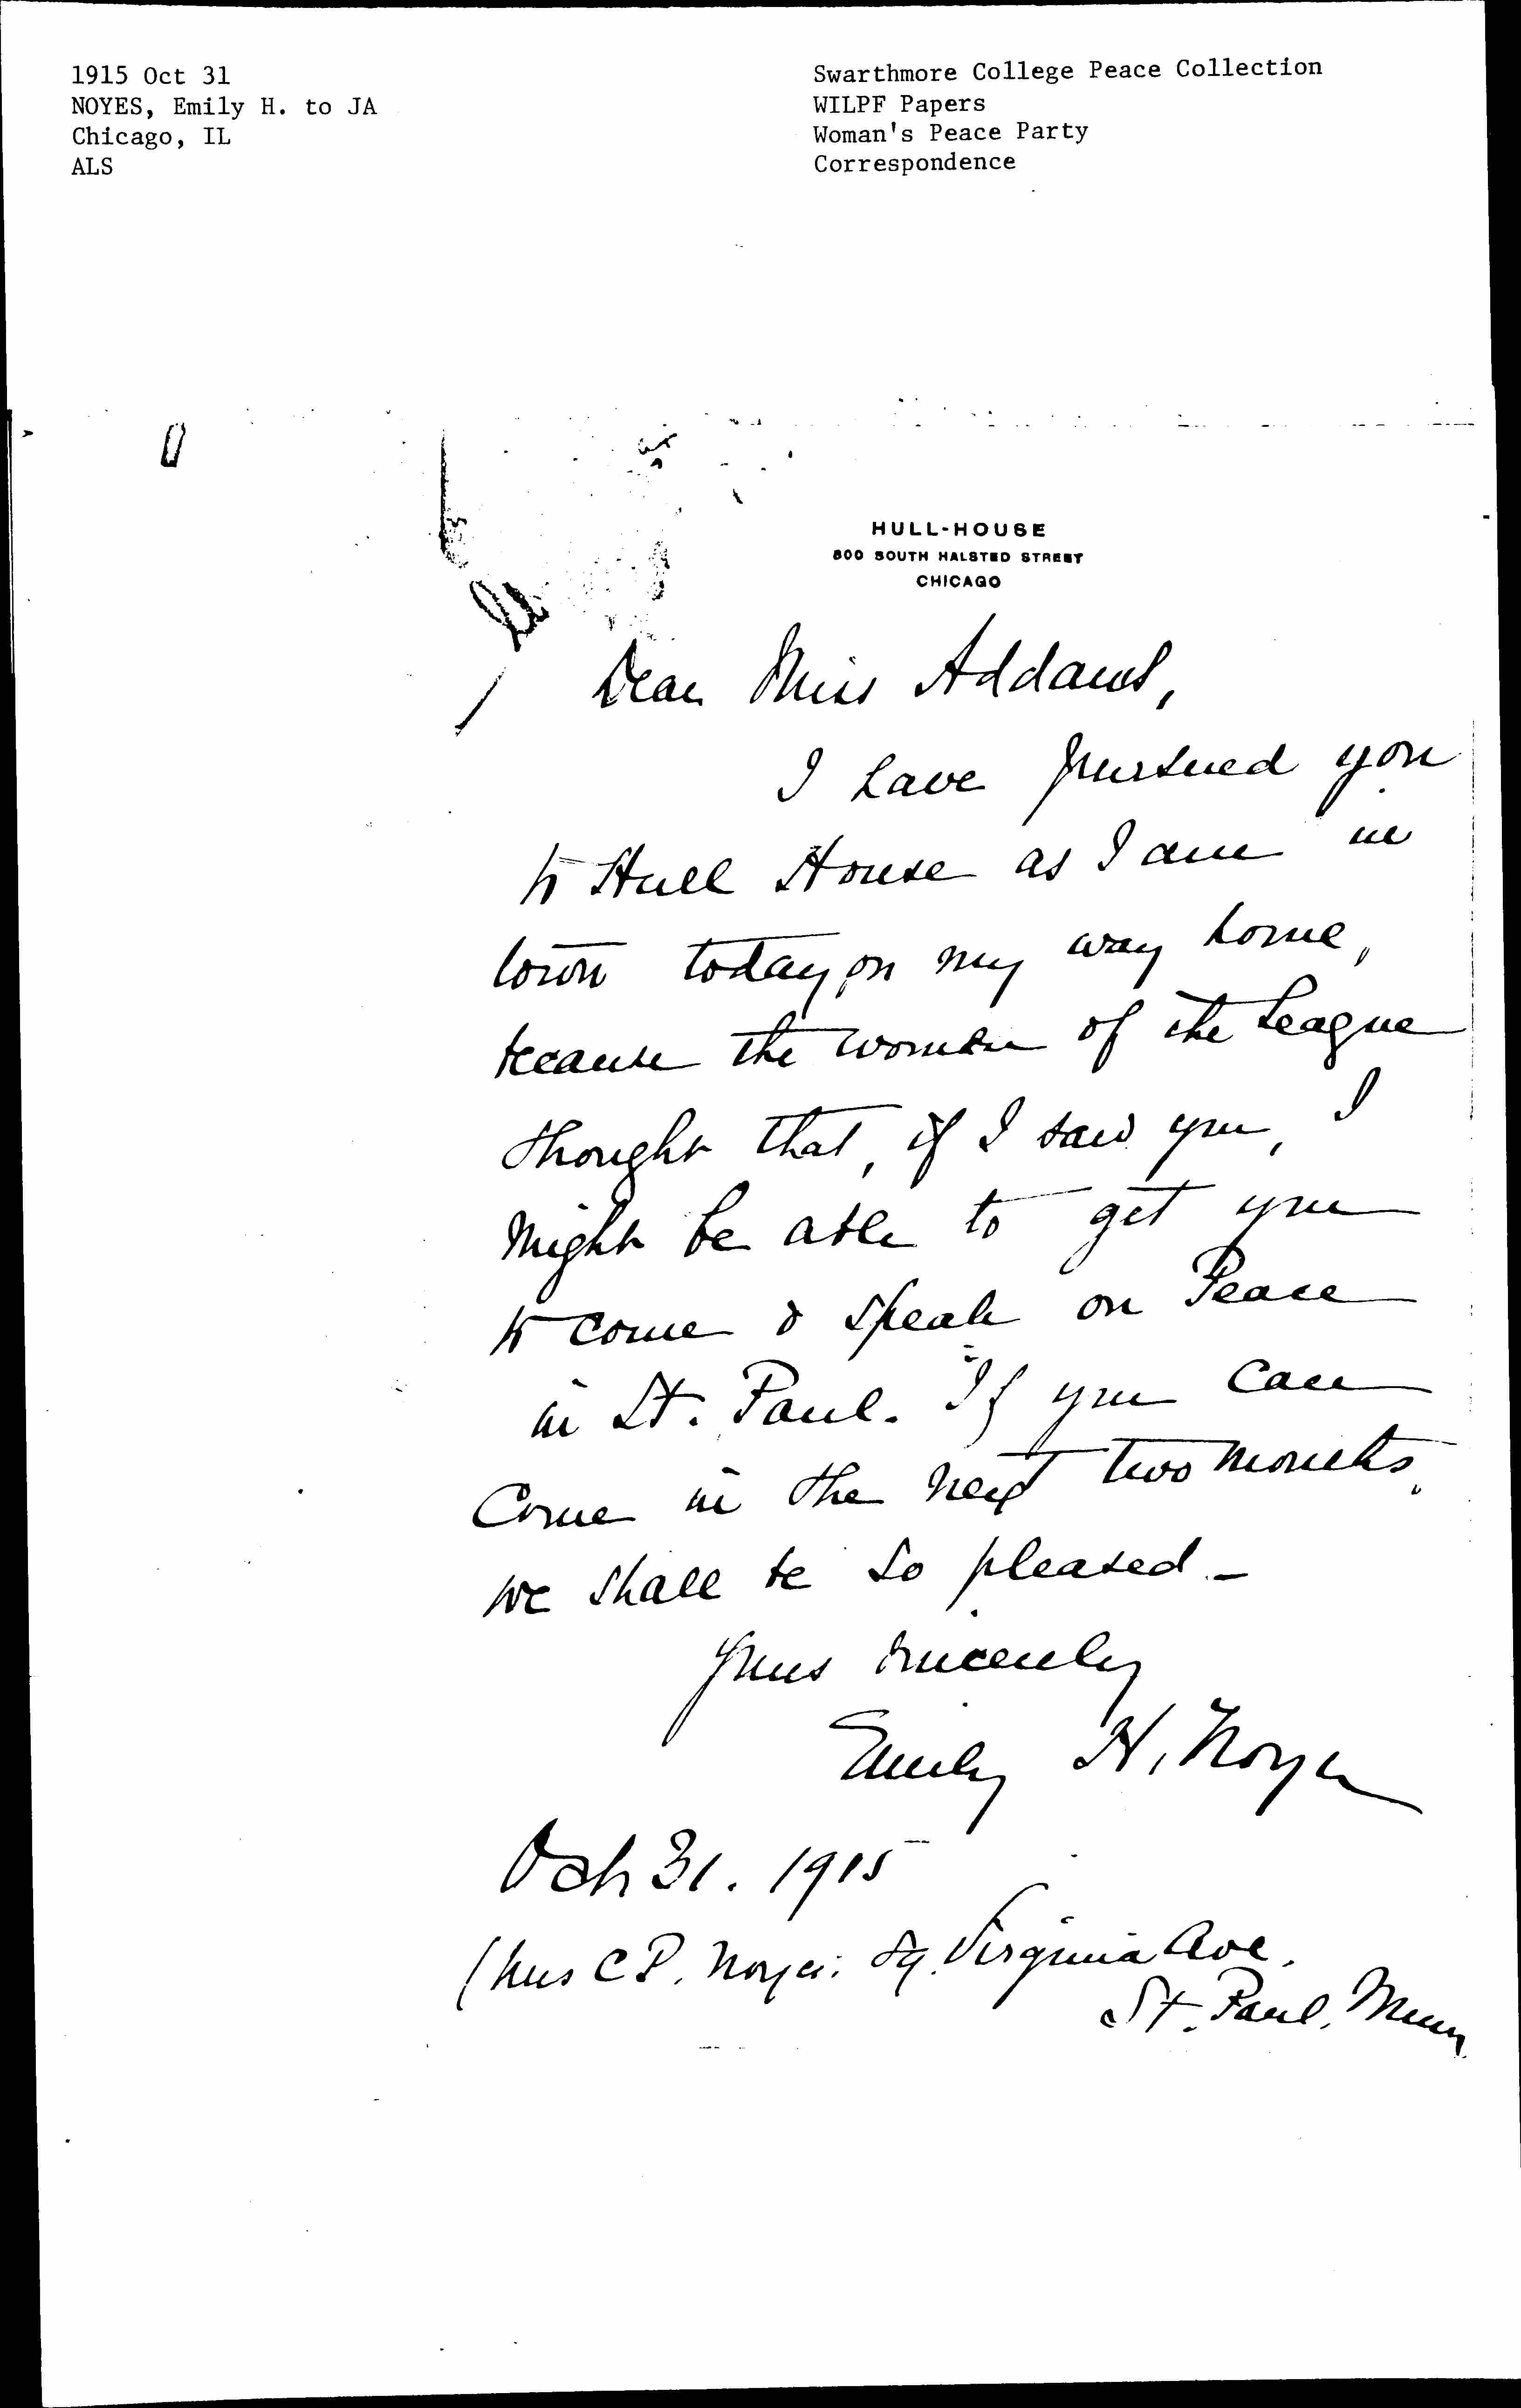 1915 Oct 31
NOYES, Emily H. to JA
Chicago, IL
ALS
Swarthmore College Peace Collection
WILPF Papers
Woman's Peace Party
Correspondence
HULL-HOUSE
800 SOUTH HALSTED STREET
CHICAGO
Dear Miss Addams,
I have pursued you
to Hull House as I am in
town today on my way home,
because the women of the League
thought that, if I saw you, I
might be able to get you
to come & speak on Peace
in St. Paul. If you can
come in the next two months,
we shall be so pleased –
Yours sincerely
Emily H. Noyes
Oct 31. 1915
(Mrs C P. Noyes. Virginia Ave.
St. Paul, Minn